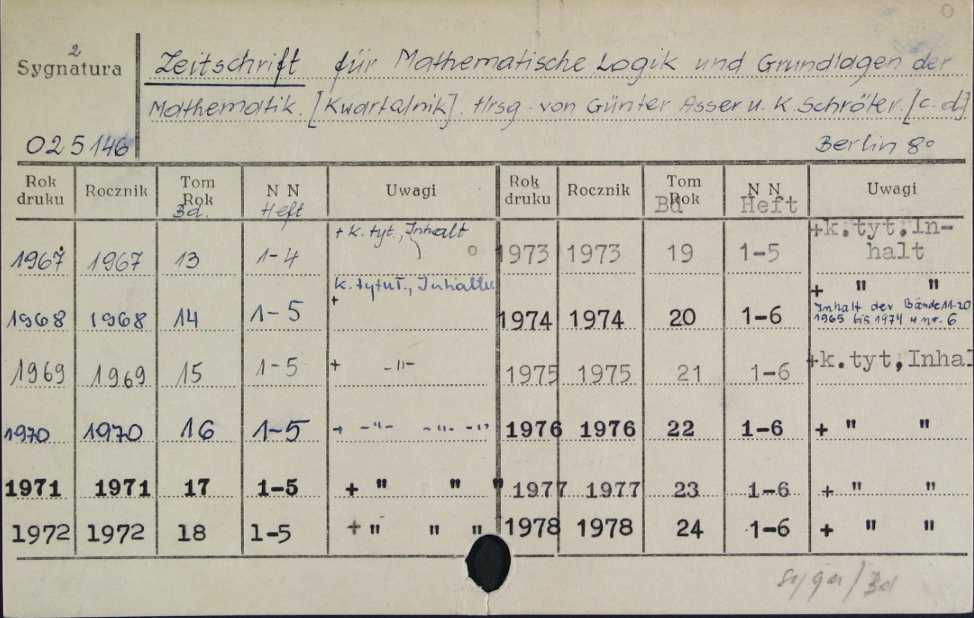 2
Sygnatura
Zeitschrift für Mathematische Logik und Grundlagen der
Mathematik. [Kwartalnik]. Hrsg. von Günter Asser u. K. Schröter. [c.d]
025146 Berlin 8°
Rok druku Rocznik Tom Rok Bd. N N Heft Uwagi Rok druku Rocznik Tom Rok Bd N N Heft Uwagi
1967 1967 13 1-4 + k. tyt., Inhalt 1973 1973 19 1-5 +k.tyt.In-
halt
1968 1968 14 1-5 k. tytuł., Inhaltu + 1974 1974 20 1-6 + " "
Inhalt der Bände 11-20
1965 bis 1974 w nr. 6
1969 1969 15 1-5 + -"- 1975 1975 21 1-6 +k.tyt,Inhal
1970 1970 16 1-5 + -"- -"- -"- 1976 1976 22 1-6 + " "
1971 1971 17 1-5 + " " " 1977 1977 23 1-6 + " "
1972 1972 18 1-5 + " " " 1978 1978 24 1-6 + " "